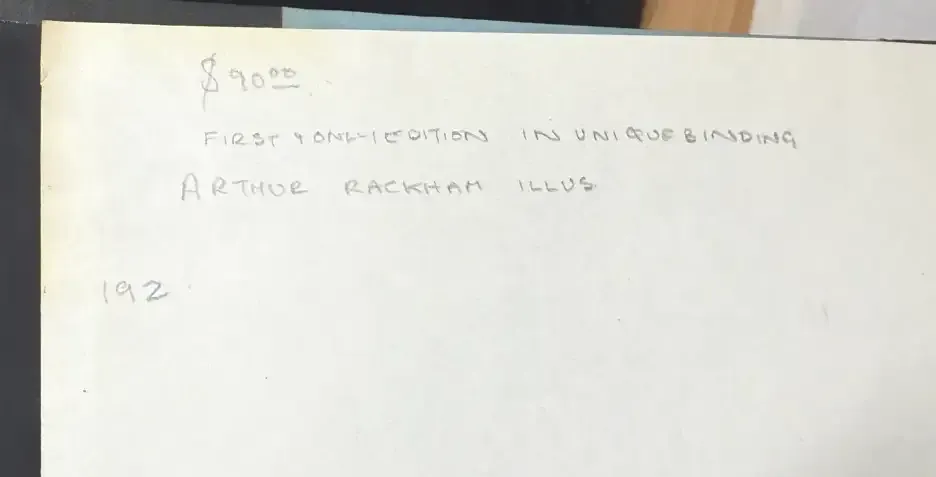 $90.00
FIRST & ONLY EDITION IN UNIQUE BINDING
ARTHUR RACKHAM ILLUS.
192